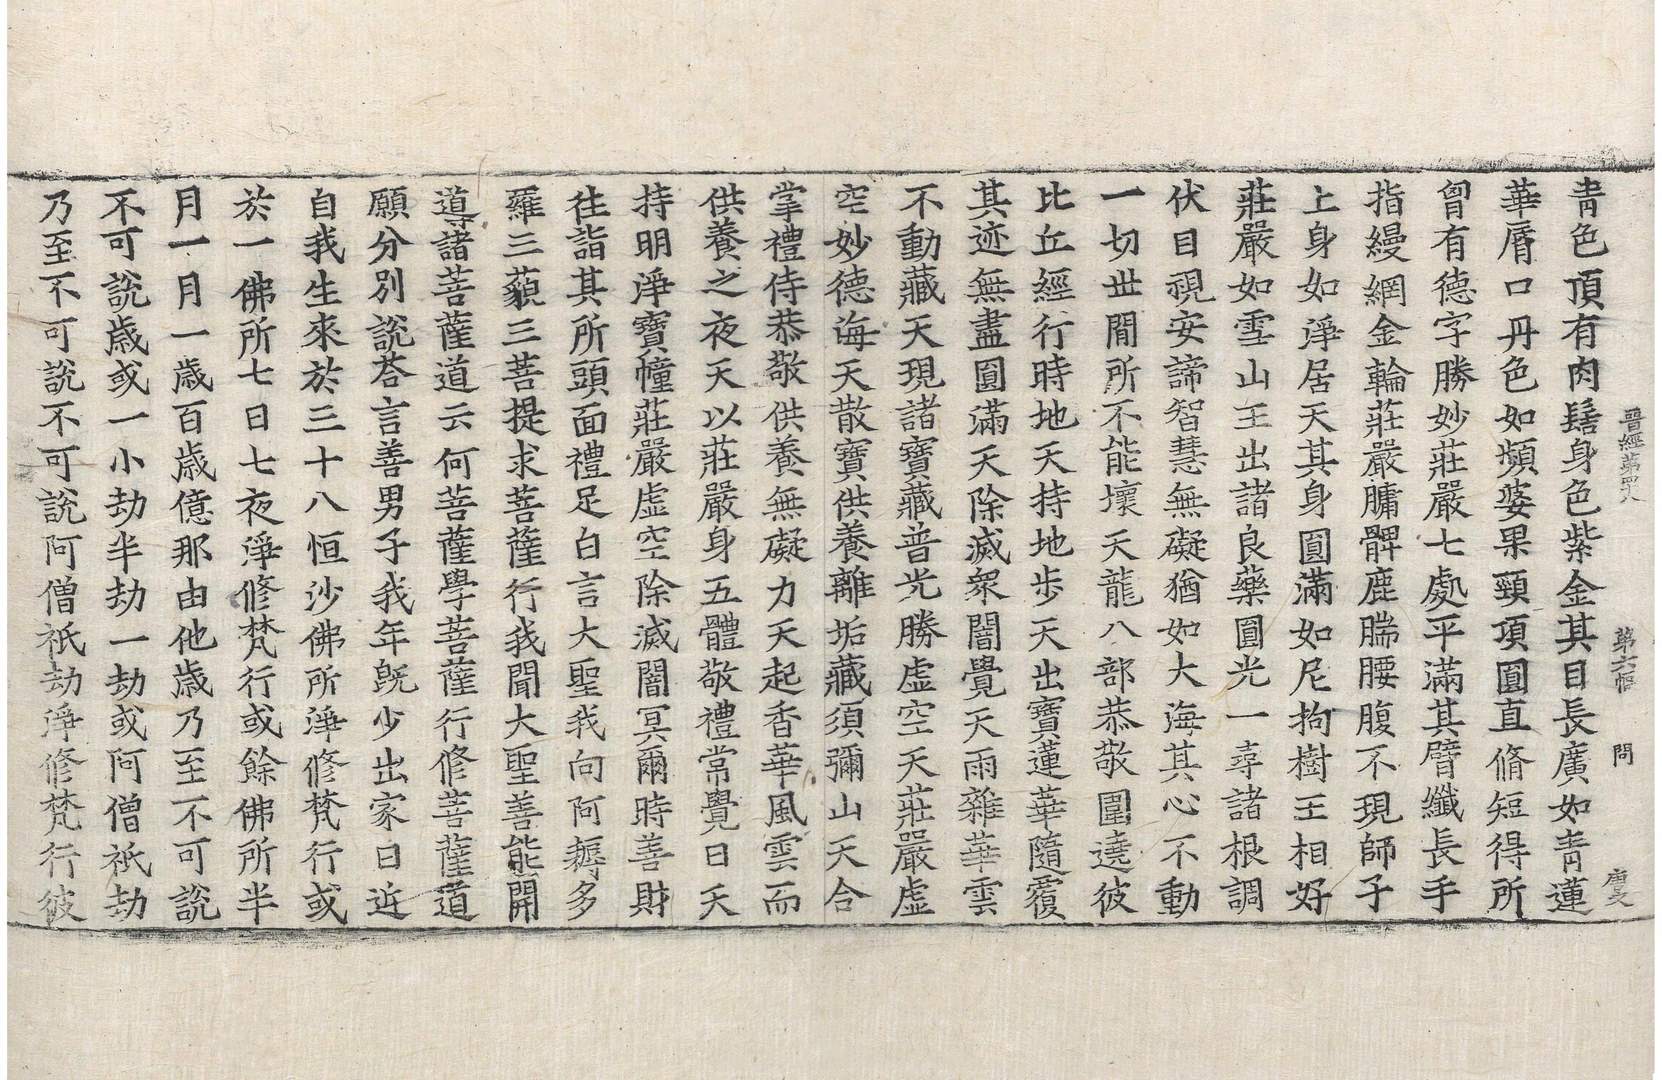 晉經第四十八 第六幅 問
青色頂有肉髻身色紫金其目長廣如青蓮
華脣口丹色如頻婆果頸項圓直脩短得所
胷有德字勝妙莊嚴七處平滿其臂纖長手
指縵網金輪莊嚴𦟛髀鹿腨腰腹不現師子
上身如淨居天其身圓滿如尼拘樹王相好
莊嚴如雪山王出諸良藥圓光一尋諸根調
伏目視安諦智慧無礙猶如大海其心不動
一切世間所不能壞天龍八部恭敬圍遶彼
比丘經行時地天持地步天出寶蓮華隨覆
其迹無盡圓滿天除滅衆闇覺天雨雜華雲
不動藏天現諸寶藏普光勝虛空天莊嚴虛
空妙德海天散寶供養離垢藏須彌山天合
掌禮侍恭敬供養無礙力天起香華風雲而
供養之夜天以莊嚴身五體敬禮常覺日天
持明淨寶幢莊嚴虛空除滅闇冥爾時善財
往詣其所頭面禮足白言大聖我向阿耨多
羅三藐三菩提求菩薩行我聞大聖善能開
導諸菩薩道云何菩薩學菩薩行修菩薩道
願分別說荅言善男子我年旣少出家日近
自我生來於三十八恒沙佛所淨修梵行或
於一佛所七日七夜淨修梵行或餘佛所半
月一月一歲百歲億那由他歲乃至不可說
不可說歲或一小劫半劫一劫或阿僧祇劫
乃至不可說不可說阿僧祇劫淨修梵行彼